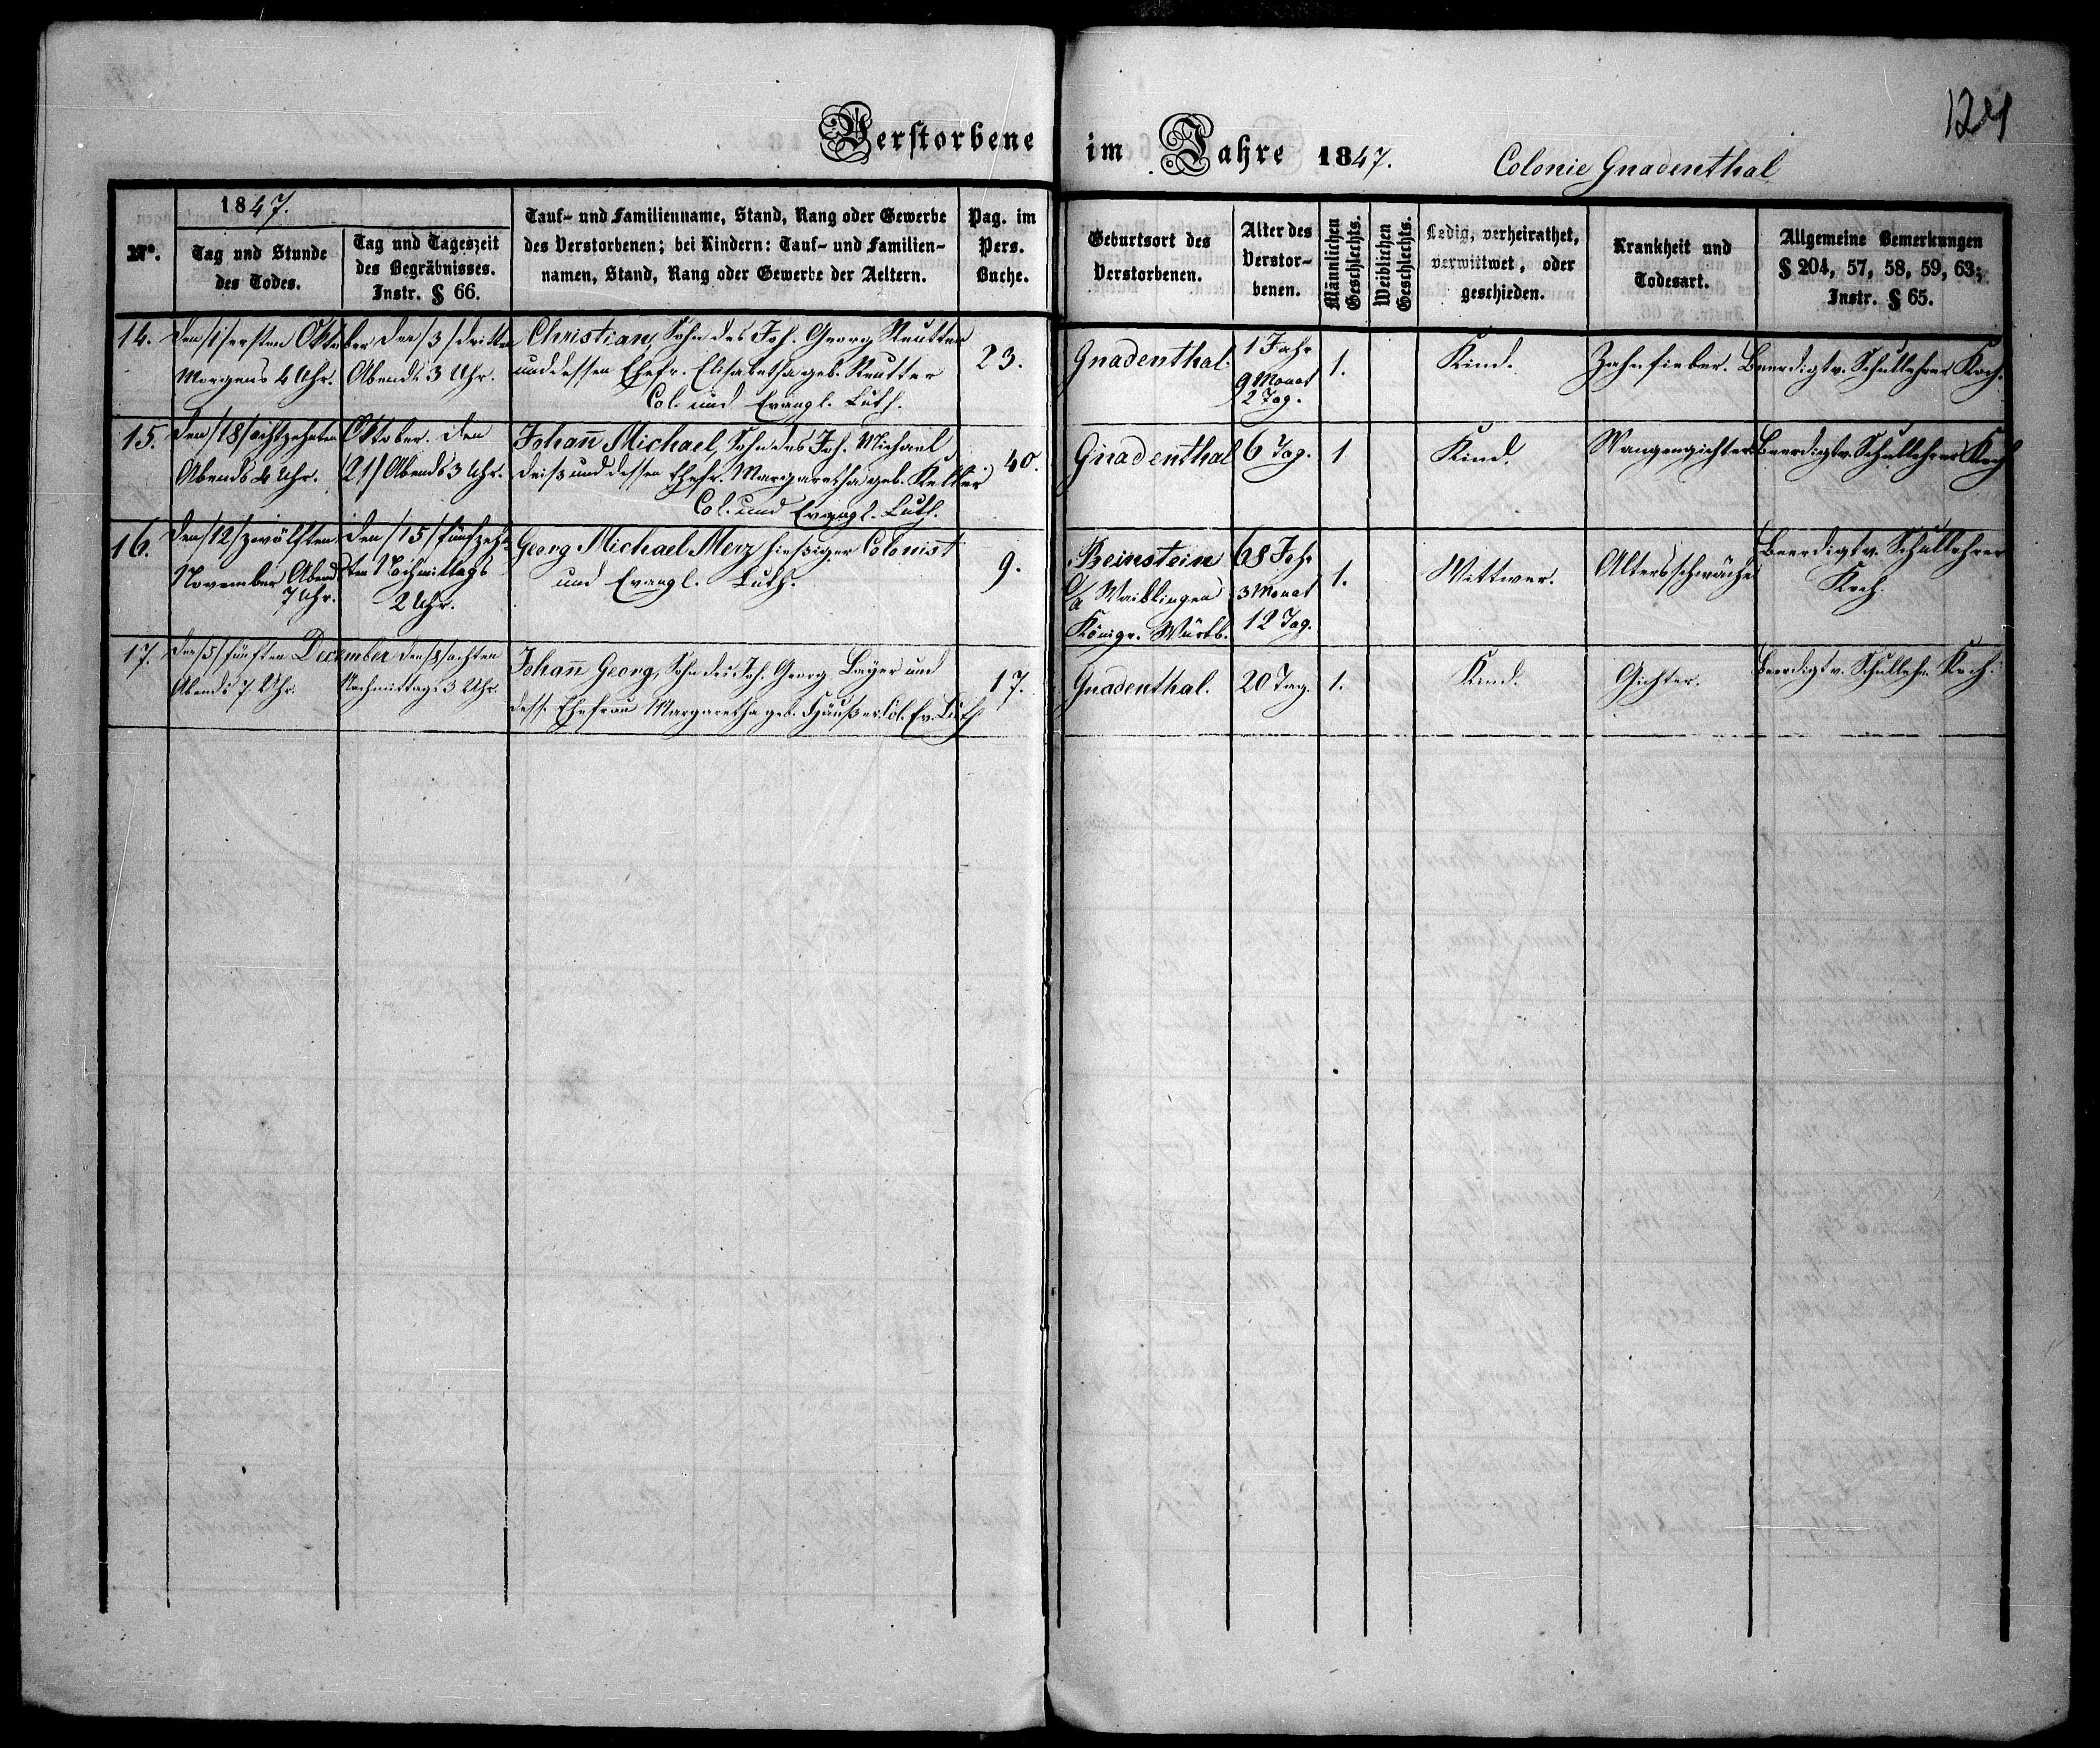 124
Verstorbene im Jahre 1847. Colonie Gnadenthal
No.
1847.
Tag und Stunde
des Todes.
Tag und Tageszeit
des Begräbnisses.
Instr. § 66.
Tauf- und Familienname, Stand, Rang oder Gewerbe
des Verstorbenen; bei Kindern: Tauf- und Familien-
namen, Stand, Rang oder Gewerbe der Aeltern.
Pag. im
Pers.
Buche.
Geburtsort des
Verstorbenen.
Alter des
Verstor-
benen.
Männlichen
Geschlechts.
Weiblichen
Geschlechts.
Ledig, verheirathet,
verwittwet, oder
geschieden.
Krankheit und
Todesart.
Allgemeine Bemerkungen
§ 204, 57, 58, 59, 63;
Instr. § 65.
14.
den /1/ ersten Oktober
Morgens 4 Uhr.
den /3/ dritten
Abends 3 Uhr.
Christian, Sohn des Joh. Georg Reutter
und dessen Ehefr. Elisabetha geb. Reutter
Col. und Evangl. Luth.
23.
Gnadenthal.
1 Jahr
9 Monat
2 Tag.
1.
Kind.
Zahnfieber.
Beerdigt v. Schullehrer Koch.
15.
den /18/ achtzehnten
Abends 4 Uhr.
Oktober. den
/21/ Abends 3 Uhr.
Johann Michael, Sohn des Joh. Michael
Deiß und dessen Ehefr. Margaretha geb. Keller
Col. und Evangl. Luth.
40.
Gnadenthal
6 Tag.
1
Kind.
Beerdigt v. Schullehrer Koch
16.
den /12/ zwölften
November Abend
7 Uhr.
den /15/ fünfzehn-
ten Nachmittags
2 Uhr.
Georg Michael Merz hiesiger Colonist
und Evangl. Luth.
9.
Beinstein
O/a Waiblingen
Königr. Würtb.
68 Jahr
3 Monat
12 Tag.
1.
Wittwer.
Altersschwäche
Beerdigt v. Schullehrer
Koch.
17.
den /5/ fünften December
Abends 7 Uhr.
den /8/ achten
Nachmittags 3 Uhr.
Johann Georg, Sohn des Joh. Georg Layer und
dess. Ehefrau Margaretha geb. Häußer. Col. Ev. Luth
17.
Gnadenthal.
20 Tag.
1.
Kind.
Gichter.
Beerdigt v. Schulleh. Koch.